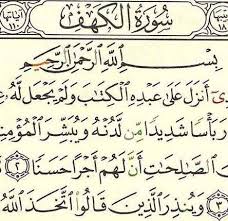 آيَاتُهَا ١١٠ سُورَةُ الْكَهْفِ ١٨
بِسْمِ اللَّهِ الرَّحْمَٰنِ الرَّحِيمِ
أَنزَلَ عَلَىٰ عَبْدِهِ الْكِتَابَ وَلَمْ يَجْعَل لَّهُ
بَأْسًا شَدِيدًا مِّن لَّدُنْهُ وَيُبَشِّرَ الْمُؤْمِن
الصَّالِحَاتِ أَنَّ لَهُمْ أَجْرًا حَسَنًا ٢
٣ وَيُنذِرَ الَّذِينَ قَالُوا اتَّخَذَ اللَّهُ